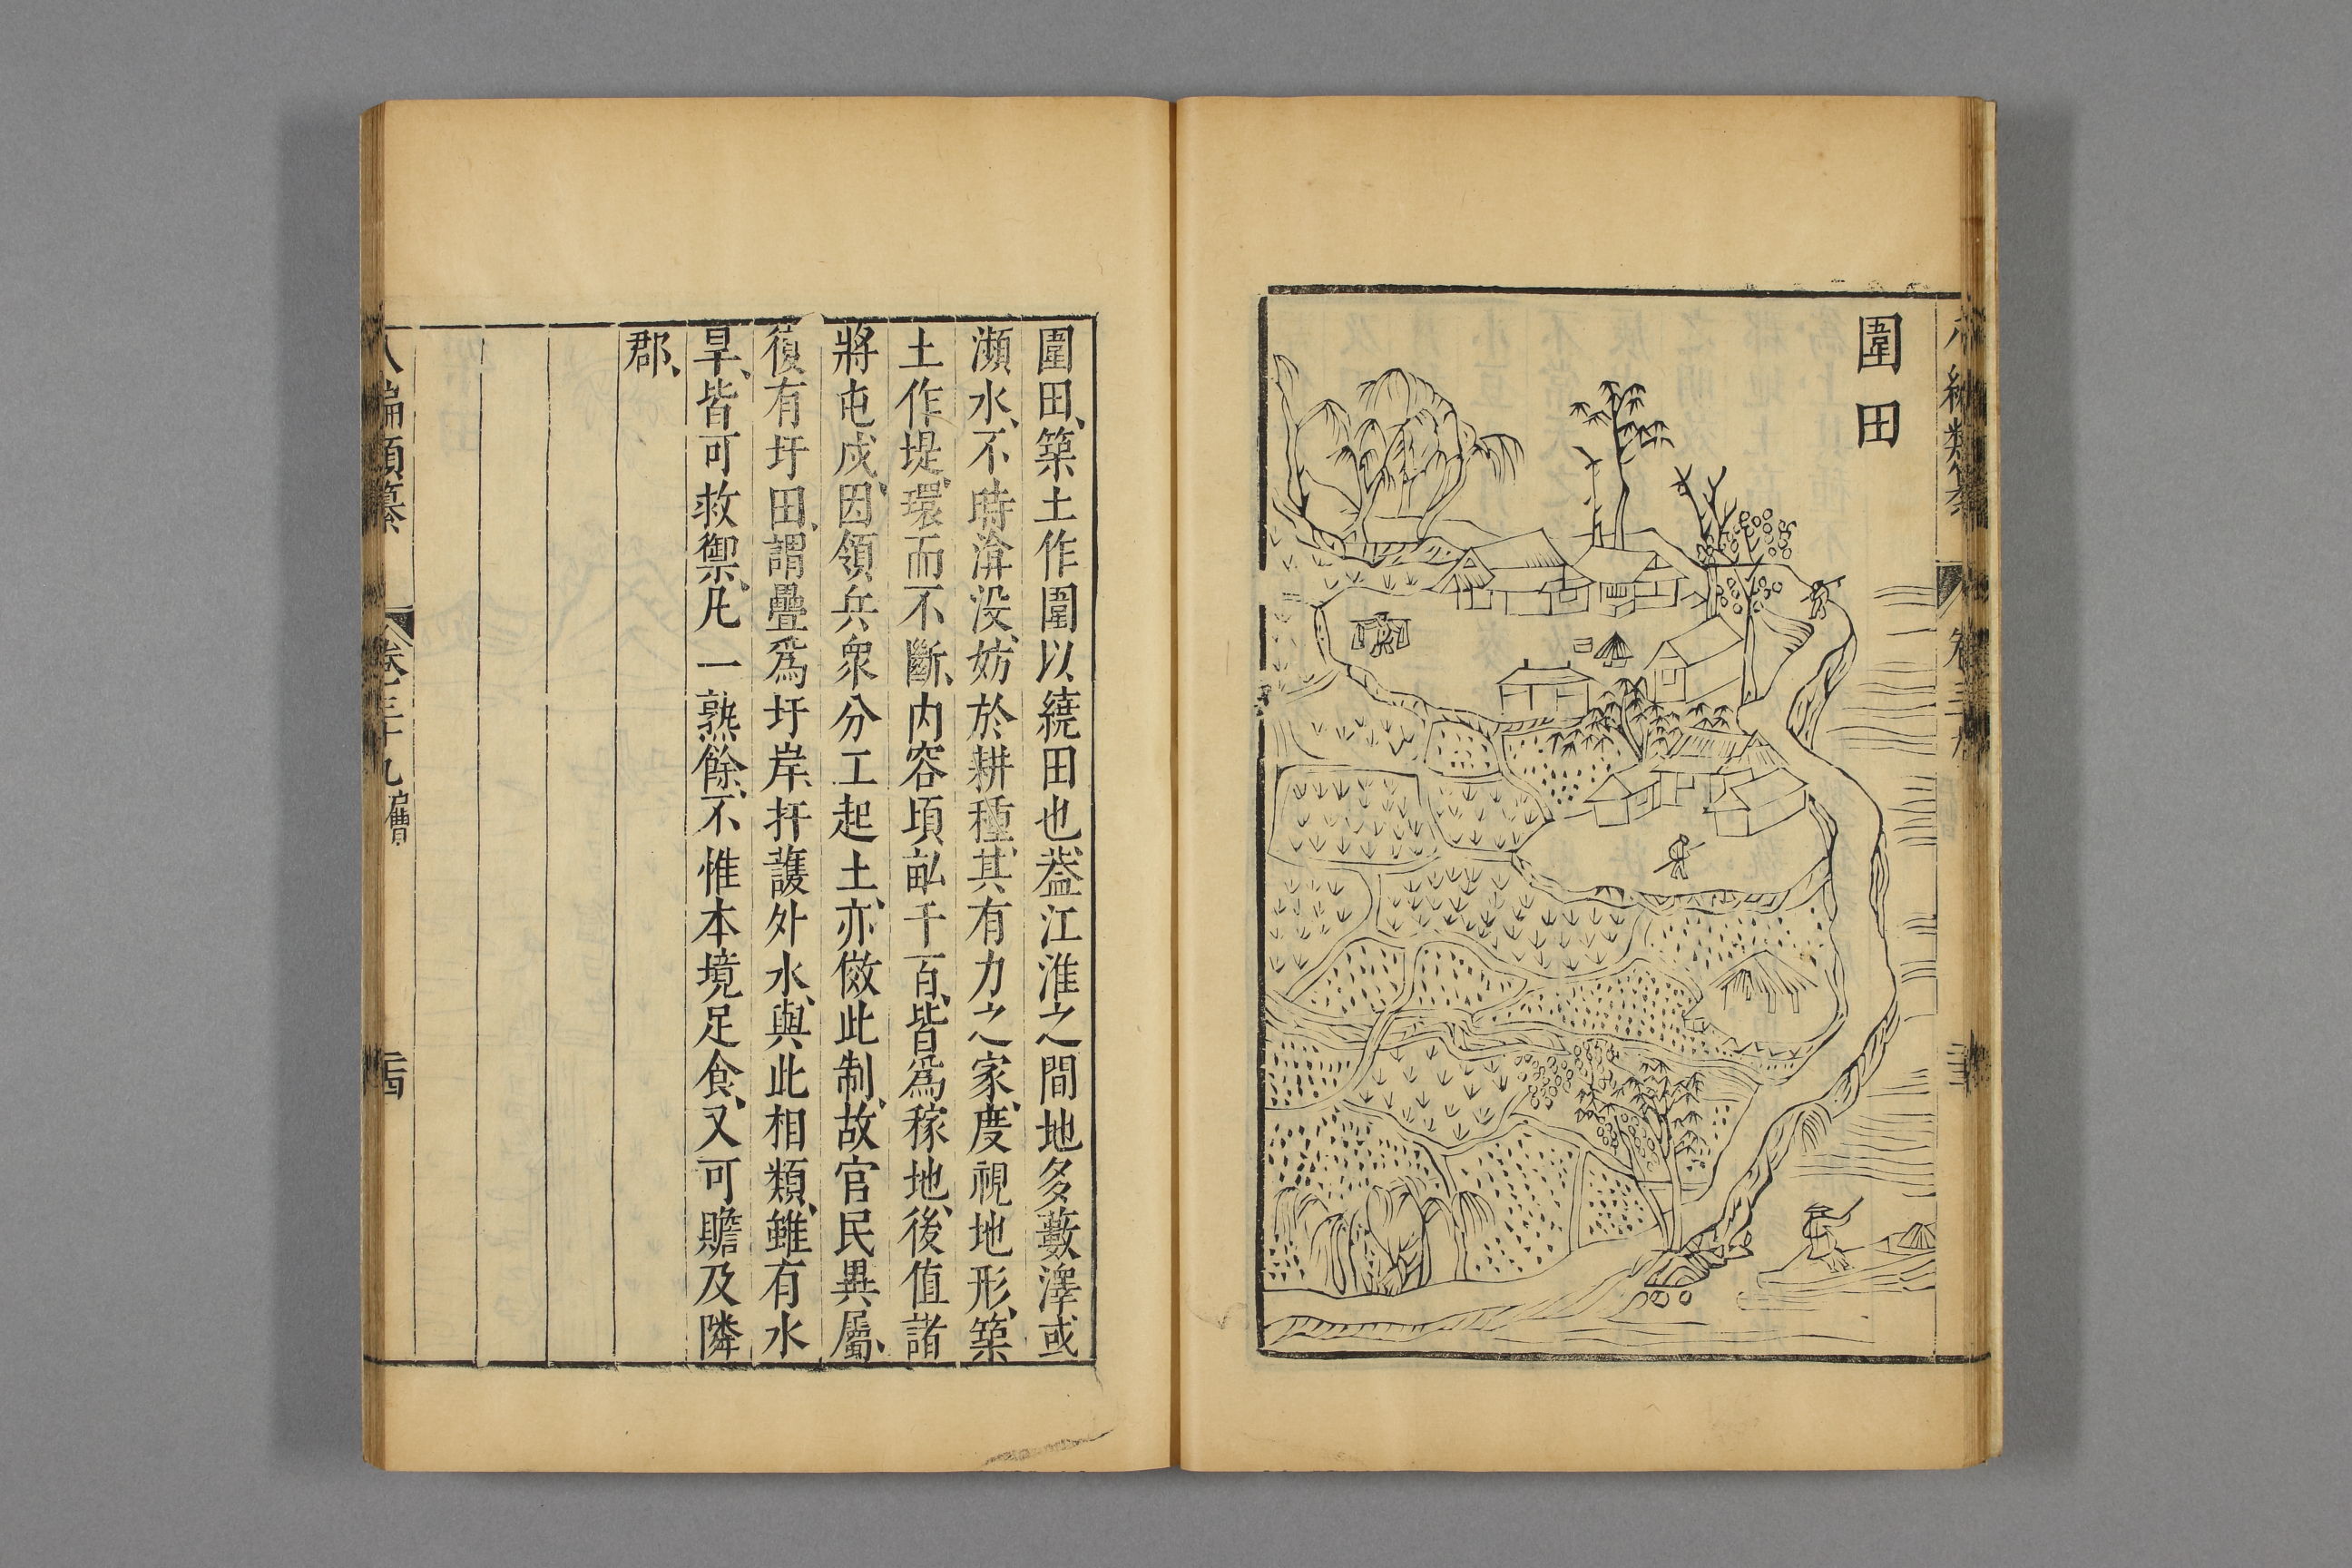 圍田
圍田、築土作圍以繞田也、葢江淮之間地多藪澤或
瀕水、不時渰没、妨於耕種、其有力之家、度視地形、築
土作堤、環而不斷、内容頃畝千百、皆爲稼地、後值諸
將屯戍、因領兵衆分工起土、亦倣此制、故官民異屬、
復有圩田、謂疊爲圩岸、扞護外水、與此相類、雖有水
旱、皆可救禦、凡一熟餘、不惟本境足食、又可贍及隣
郡、
八編類纂
卷三十九